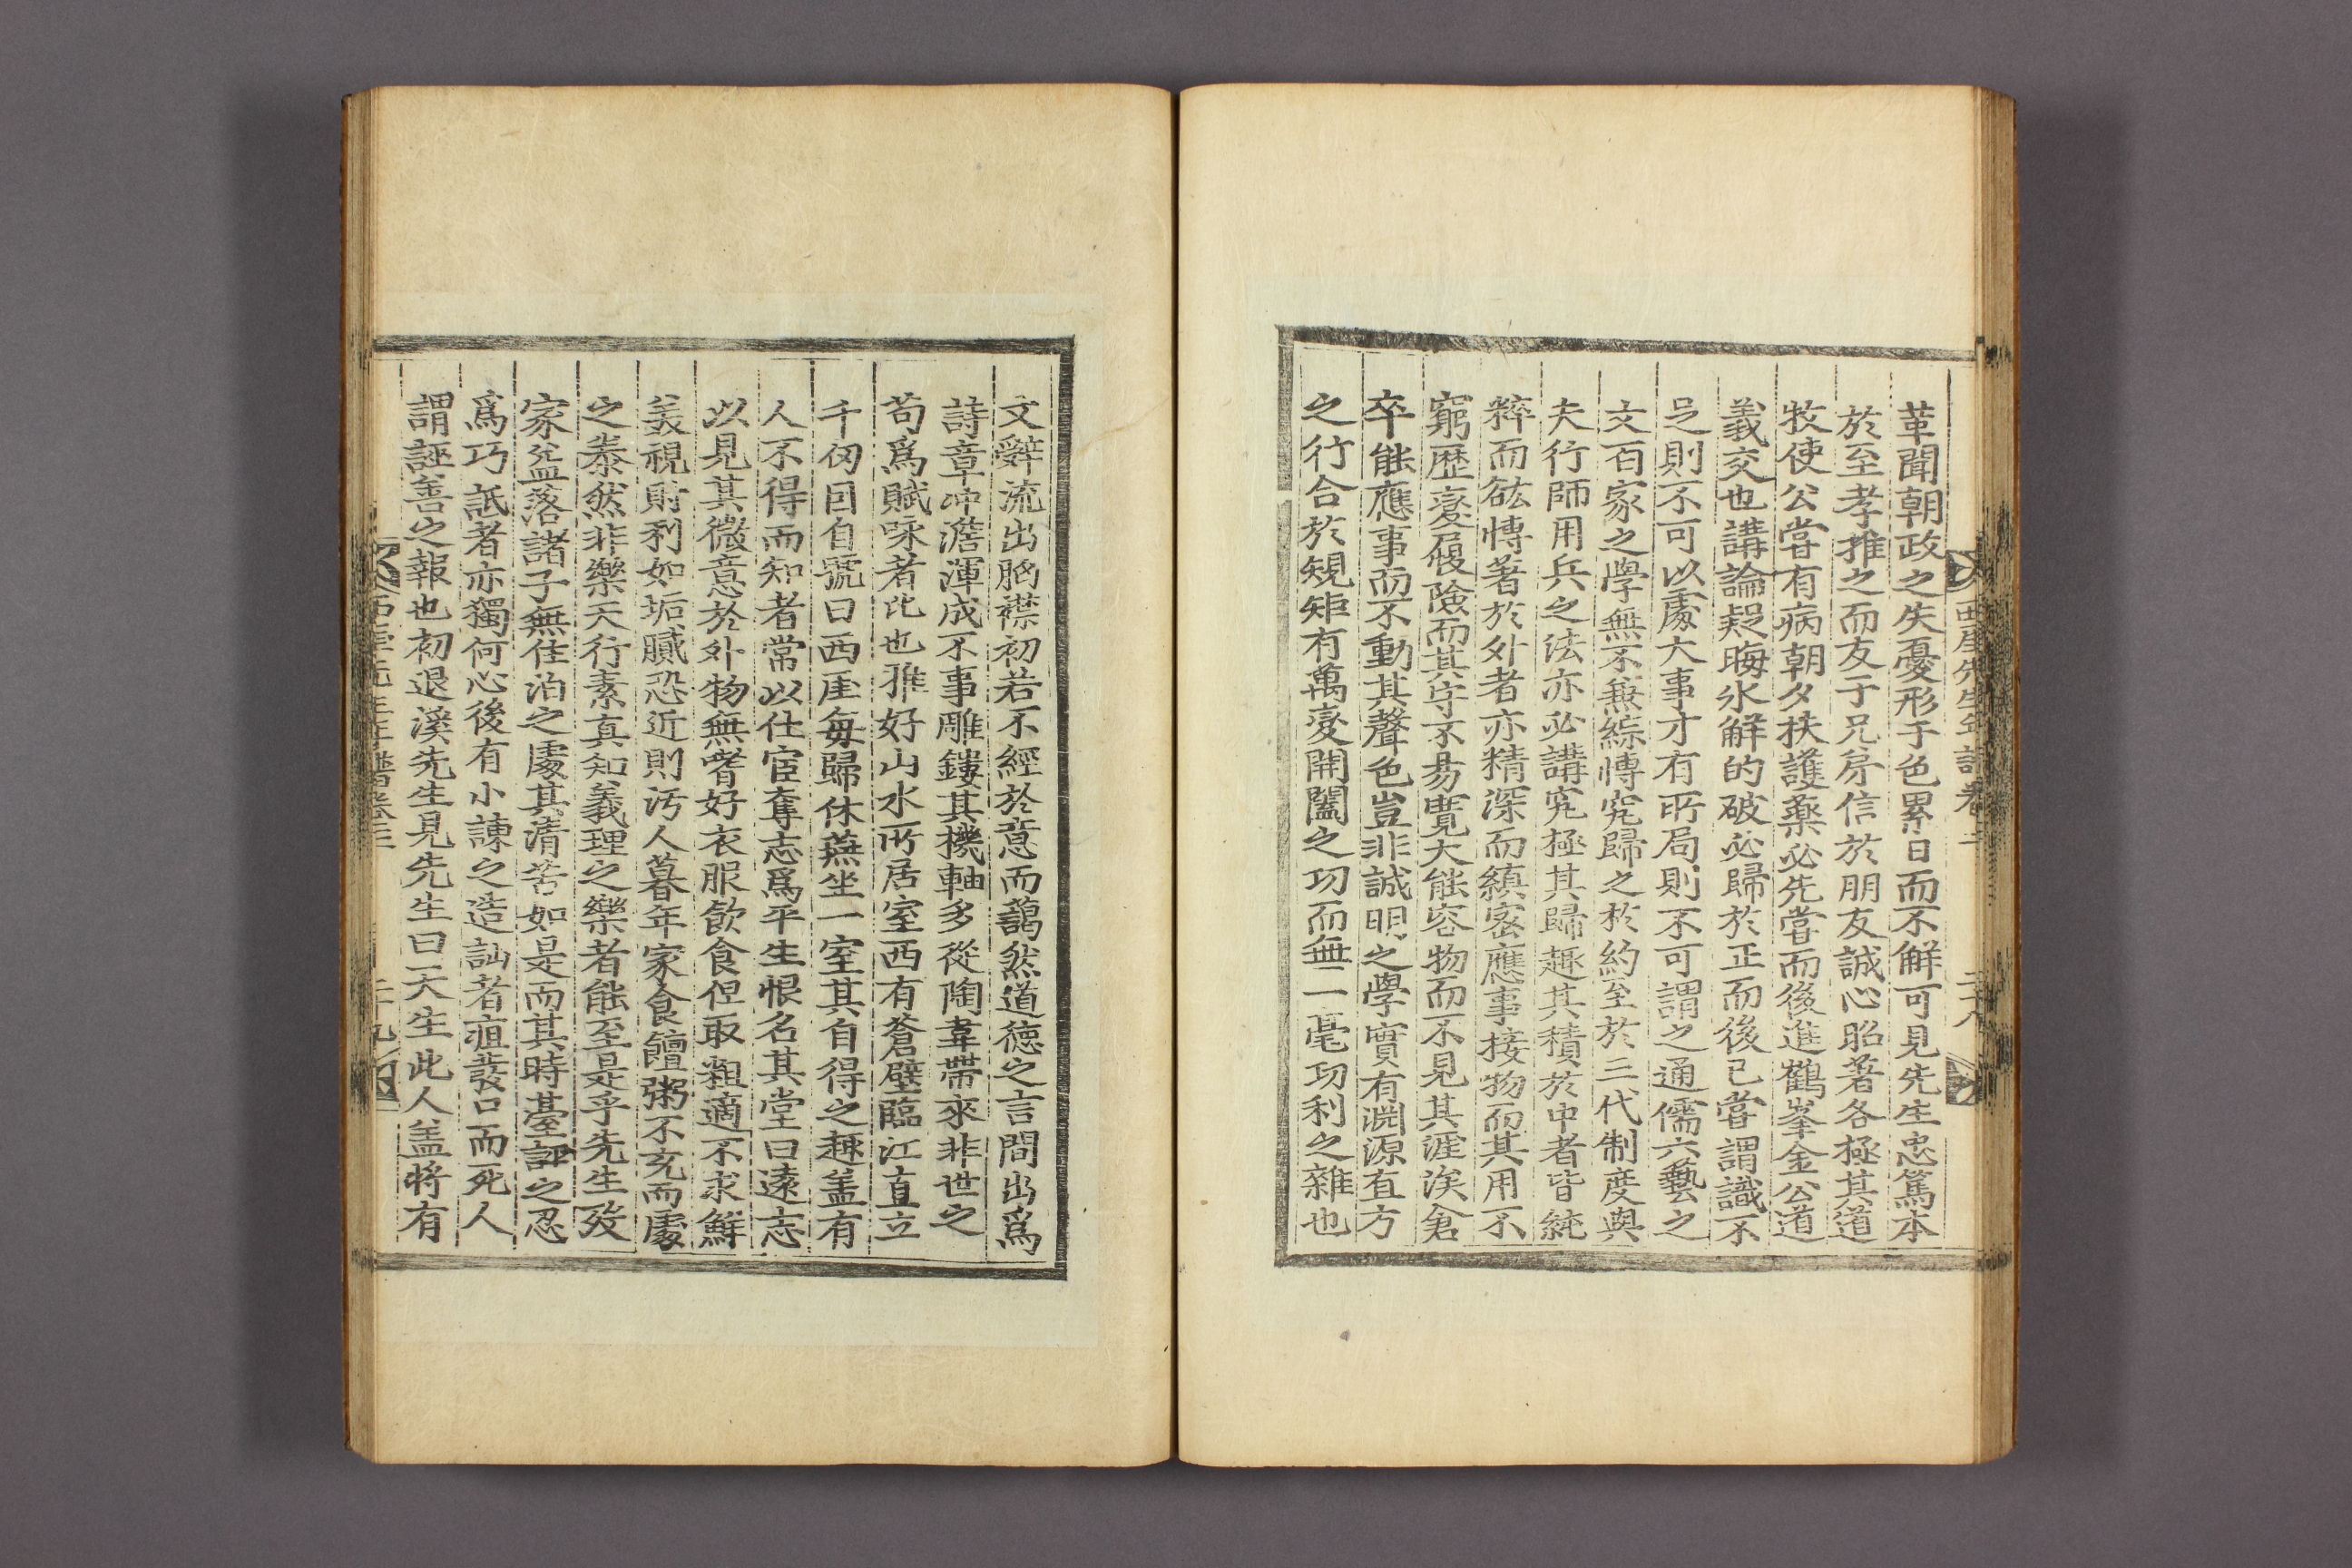 西厓先生年譜卷三
二十八
革聞朝政之失憂形于色累日而不解可見先生忠篤本
於至孝推之而友于兄弟信於朋友誠心昭著各極其道
牧使公嘗有病朝夕扶護藥必先嘗而後進鶴峯金公道
義交也講論疑晦氷解的破必歸於正而後已嘗謂識不
足則不可以處大事才有所局則不可謂之通儒六藝之
文百家之學無不兼綜博究歸之於約至於三代制度與
夫行師用兵之法亦必講究極其歸趣其積於中者皆純
粹而紘博著於外者亦精深而縝密應事接物而其用不
窮歷變履險而其守不易寬大能容物而不見其涯涘倉
卒能應事而不動其聲色豈非誠明之學實有淵源直方
之行合於規矩有萬變開闔之功而無一毫功利之雜也
文辭流出胸襟初若不經於意而藹然道德之言間出爲
詩章冲澹渾成不事雕鏤其機軸多從陶韋帶來非世之
苟爲賦咏者比也雅好山水所居室西有蒼壁臨江直立
千仞因自號曰西厓每歸休蕪坐一室其自得之趣盖有
人不得而知者常以仕宦奪志爲平生恨名其堂曰遠志
以見其微意於外物無嗜好衣服飮食但取粗適不求鮮
美視財利如垢膩恐近則汚人暮年家食饘粥不充而處
之泰然非樂天行素真知義理之樂者能至是乎先生歿
家益落諸子無住泊之處其清苦如是而其時臺評之忍
爲巧詆者亦獨何心後有小諫之造訕者疽發口而死人
謂誣善之報也初退溪先生見先生曰天生此人盖將有
西厓先生年譜卷三
二十九